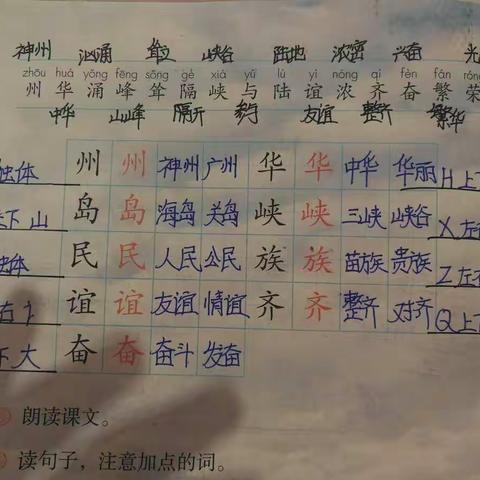 神州 汹涌 耸立 峡谷 陆地 浓密 兴奋 光
zhōu huá yǒng fēng sǒng gé xiá yǔ lù yì nóng qí fèn fán róng
州 华 涌 峰 耸 隔 峡 与 陆 谊 浓 齐 奋 繁 荣
中华 山峰 隔开 友谊 整齐 繁华
独体 州 州 神州 广州 华 华 中华 华丽 H 上下
下 山 岛 岛 海岛 关岛 峡 峡 三峡 峡谷 X 左右
独体 民 民 人民 公民 族 族 苗族 贵族 Z 左右
右 谊 谊 友谊 情谊 齐 齐 整齐 对齐 Q 上下
下 大 奋 奋 奋斗 发奋
朗读课文。
读句子，注意加点的词。